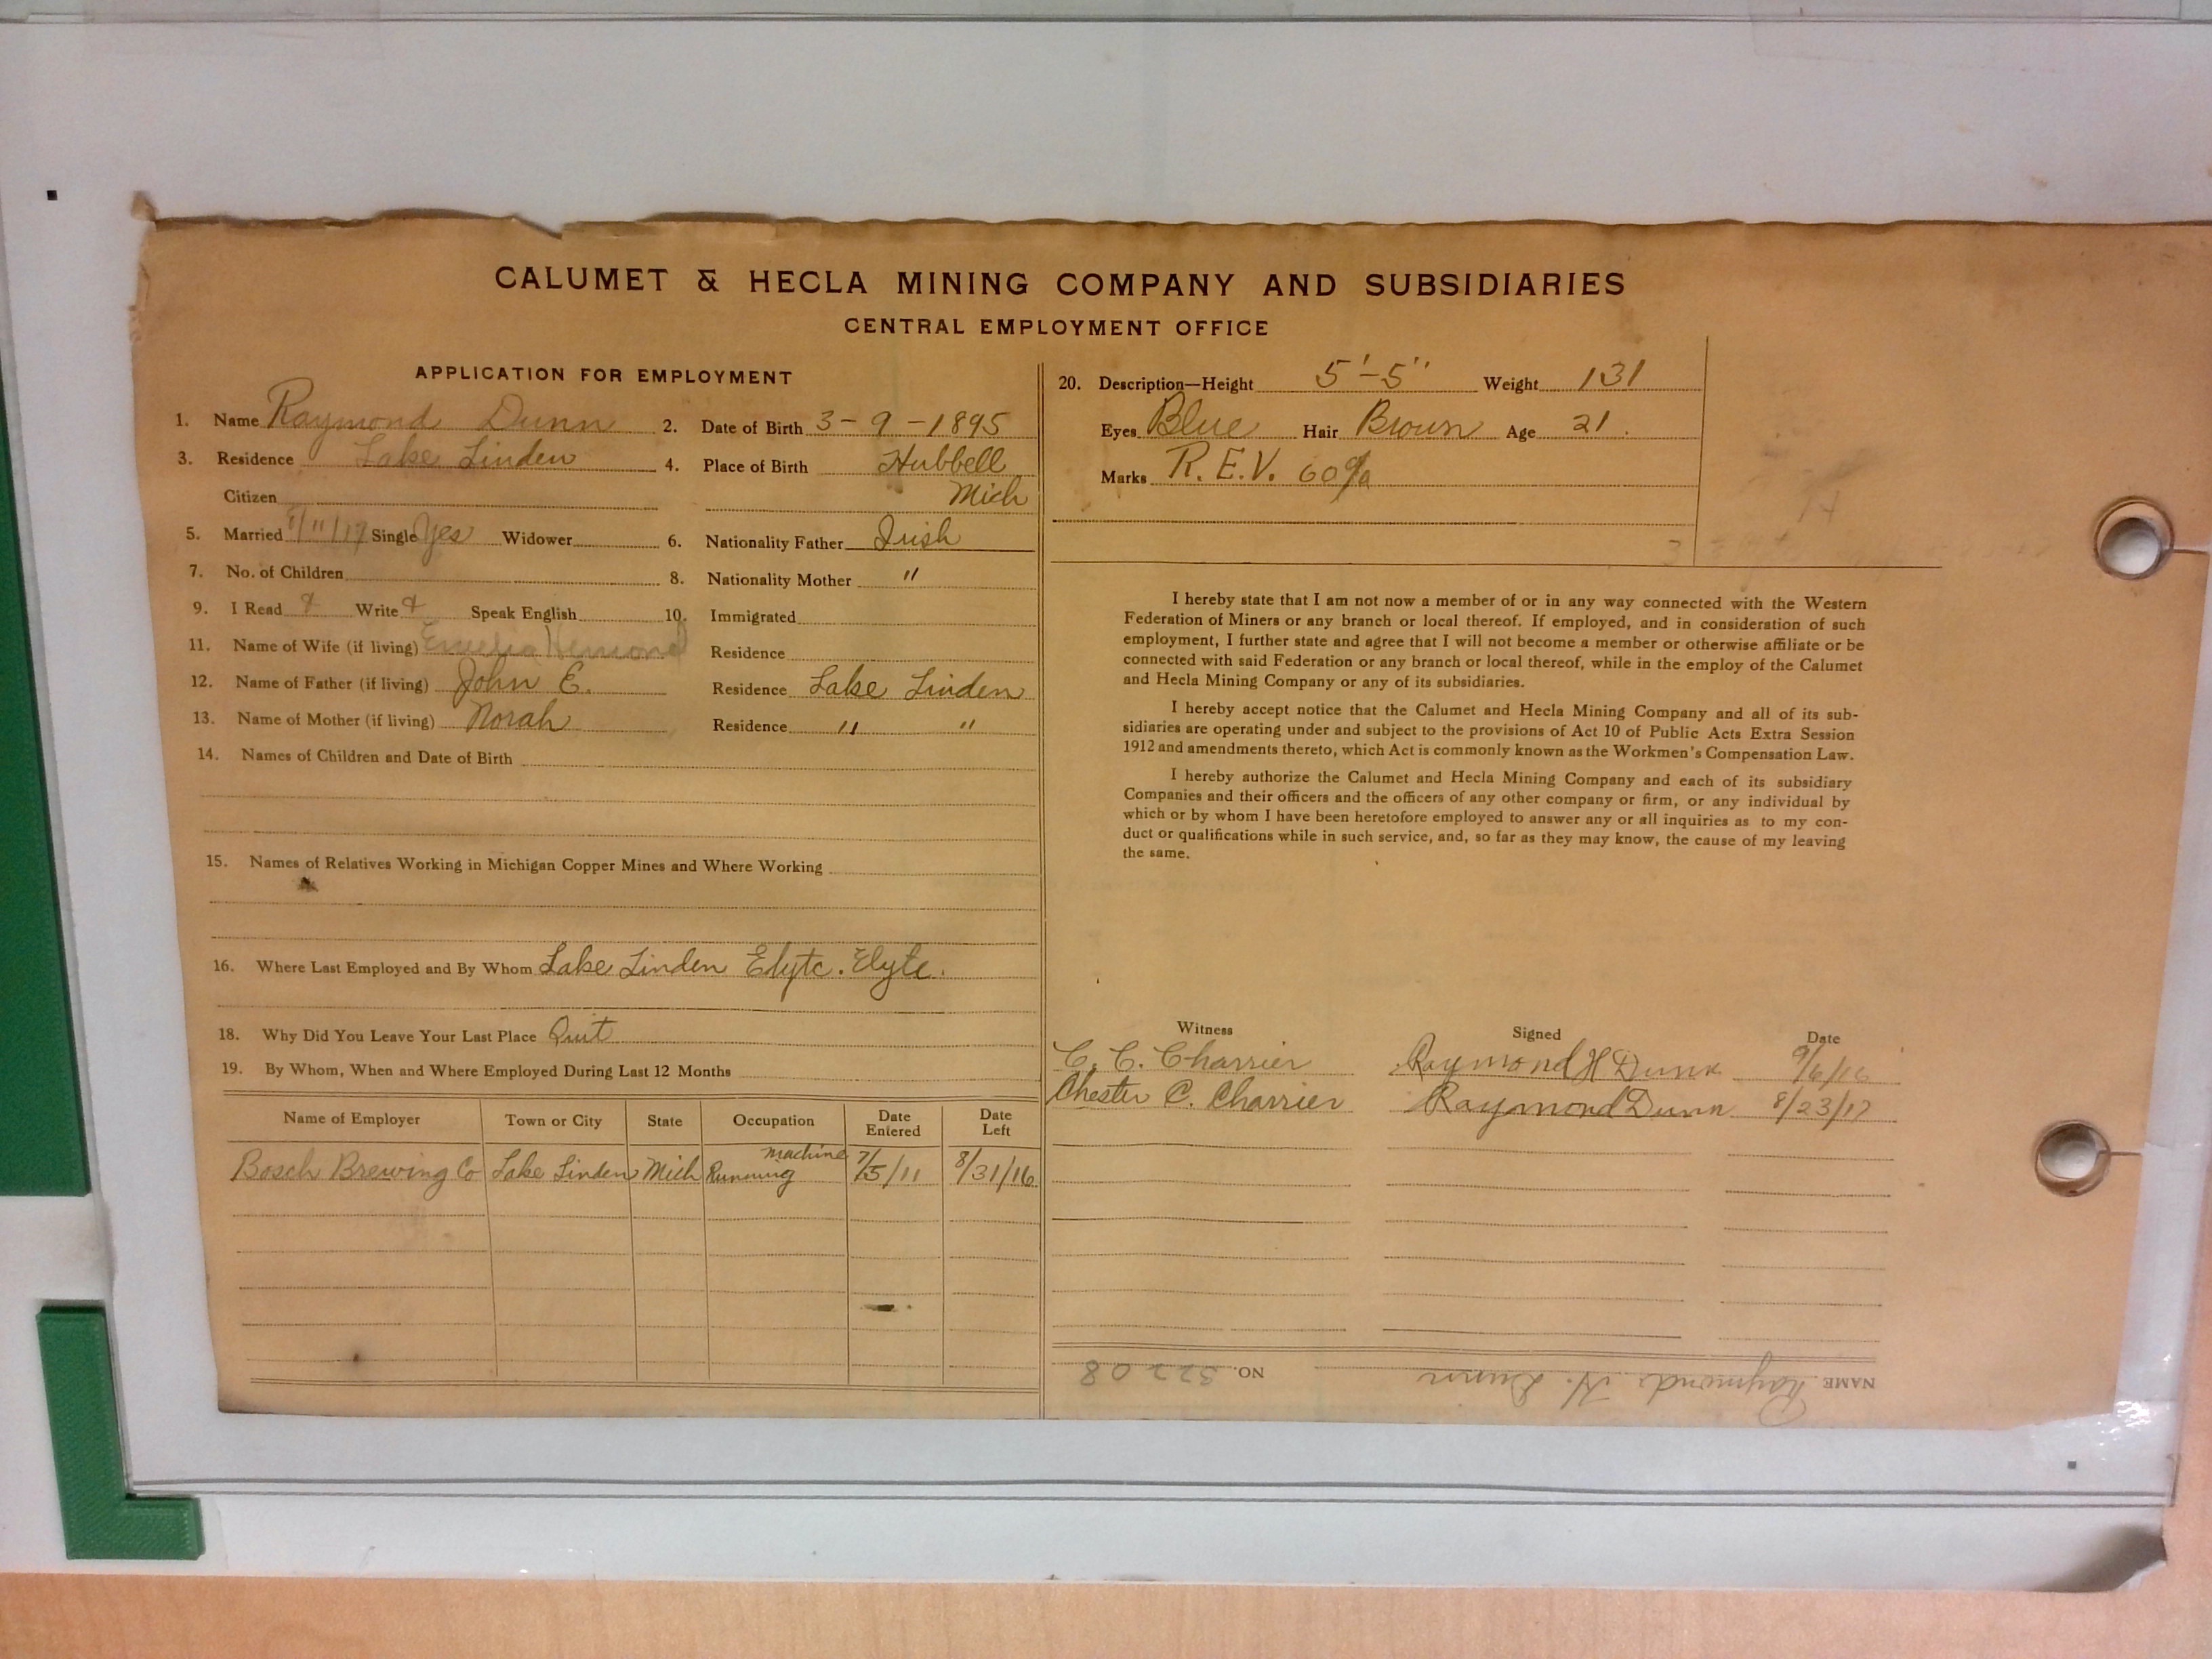 CALUMET & HECLA MINING COMPANY AND SUBSIDIARIES
CENTRAL EMPLOYMENT OFFICE
APPLICATION FOR EMPLOYMENT
1. Name Raymond Dunn 2. Date of Birth 3-9-1895
3. Residence Lake Linden 4. Place of Birth Hubbell
Citizen Mich
5. Married /11/17 Single Yes Widower 6. Nationality Father Irish
7. No. of Children 8. Nationality Mother "
9. I Read Write Speak English 10. Immigrated
11. Name of Wife (if living) Residence
12. Name of Father (if living) John E. Residence Lake Linden
13. Name of Mother (if living) Norah Residence " "
14. Names of Children and Date of Birth
15. Names of Relatives Working in Michigan Copper Mines and Where Working
16. Where Last Employed and By Whom Lake Linden Elytc. Elyte.
18. Why Did You Leave Your Last Place Quit
19. By Whom, When and Where Employed During Last 12 Months
Name of Employer Town or City State Occupation Date Entered Date Left
Bosch Brewing Co Lake Linden Mich Running machine 7/5/11 8/31/16
20. Description—Height 5'-5" Weight 131
Eyes Blue Hair Brown Age 21.
Marks R.E.V. 60%
I hereby state that I am not now a member of or in any way connected with the Western
Federation of Miners or any branch or local thereof. If employed, and in consideration of such
employment, I further state and agree that I will not become a member or otherwise affiliate or be
connected with said Federation or any branch or local thereof, while in the employ of the Calumet
and Hecla Mining Company or any of its subsidiaries.
I hereby accept notice that the Calumet and Hecla Mining Company and all of its sub-
sidiaries are operating under and subject to the provisions of Act 10 of Public Acts Extra Session
1912 and amendments thereto, which Act is commonly known as the Workmen's Compensation Law.
I hereby authorize the Calumet and Hecla Mining Company and each of its subsidiary
Companies and their officers and the officers of any other company or firm, or any individual by
which or by whom I have been heretofore employed to answer any or all inquiries as to my con-
duct or qualifications while in such service, and, so far as they may know, the cause of my leaving
the same.
Witness Signed Date
C. C. Charrier Raymond H Dunn 9/6/16
Chester C. Charrier Raymond Dunn 8/23/17
NAME Raymond H. Dunn NO. 32208